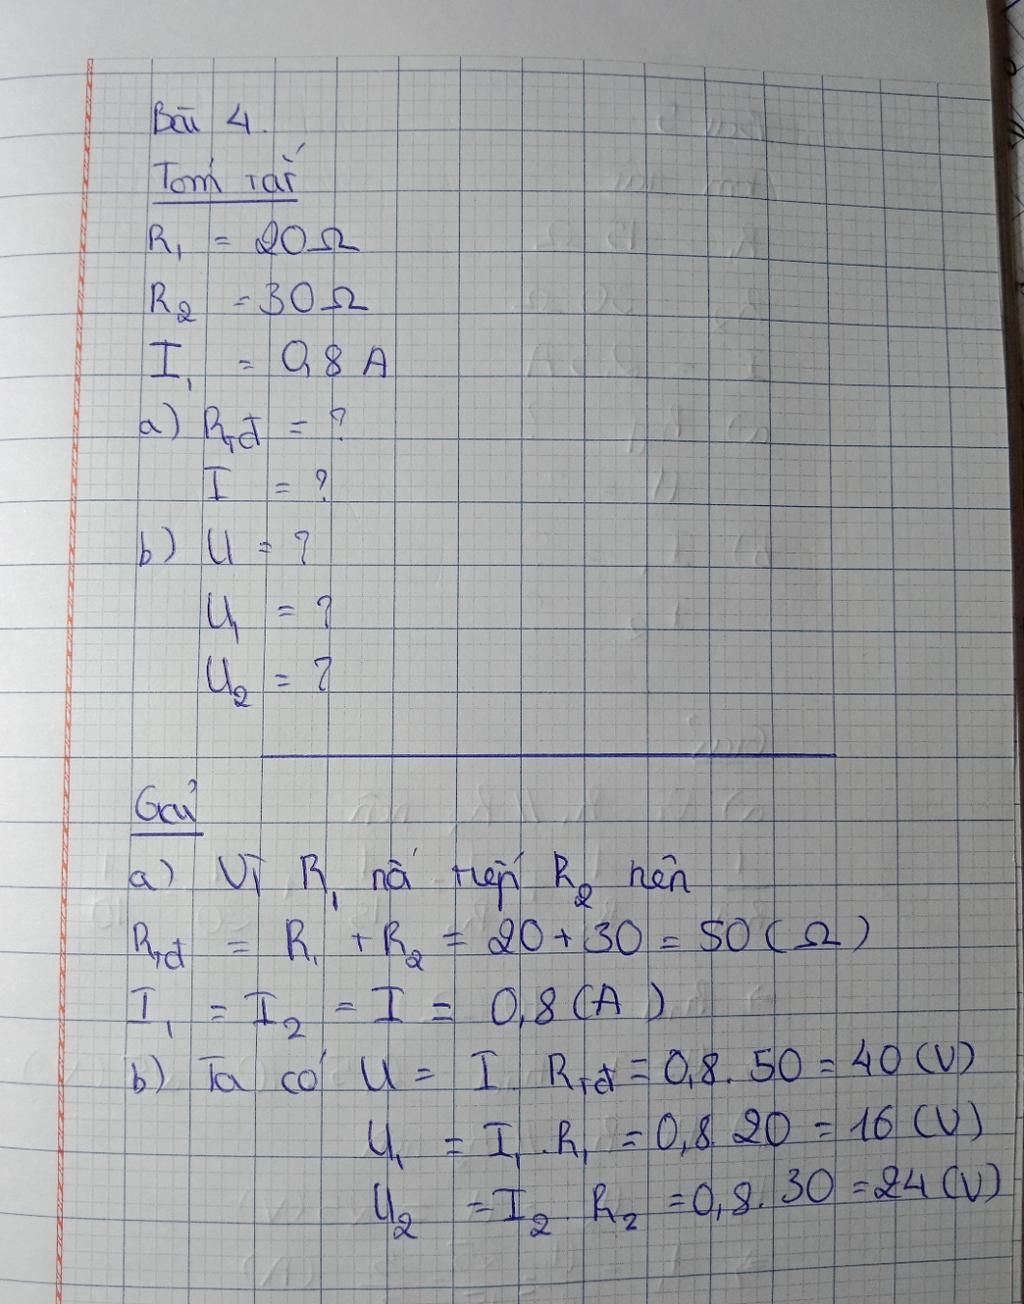 Bài 4.
Tóm tắt
R₁ = 20Ω
R₂ = 30Ω
I₁ = 0,8 A
a) Rtđ = ?
I = ?
b) U = ?
U₁ = ?
U₂ = ?
Giải
a) Vì R₁ nố tiếp R₂ nên
Rtđ = R₁ + R₂ = 20 + 30 = 50 (Ω)
I₁ = I₂ = I = 0,8 (A)
b) Ta có U = I Rtđ = 0,8 . 50 = 40 (V)
U₁ = I₁ . R₁ = 0,8 20 = 16 (V)
U₂ = I₂ R₂ = 0,8 . 30 = 24 (V)